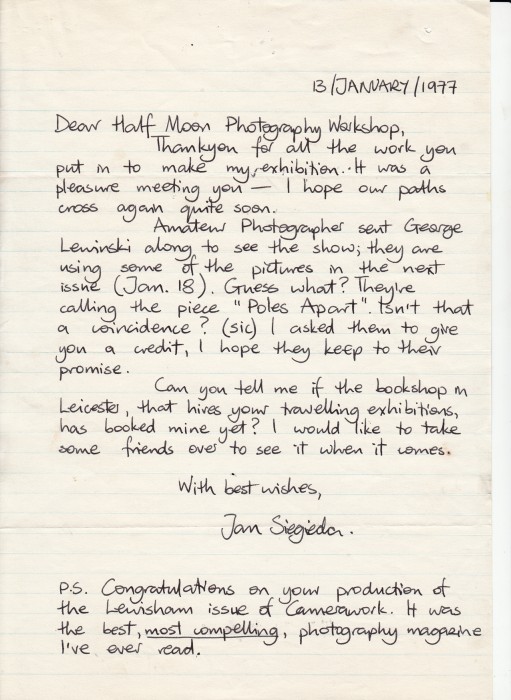 13/JANUARY/1977
Dear Half Moon Photography Workshop,
Thankyou for all the work you
put in to make my exhibition. It was a
pleasure meeting you — I hope our paths
cross again quite soon.
Amateur Photographer sent George
Lewinski along to see the show; they are
using some of the pictures in the next
issue (Jan. 18). Guess what? They're
calling the piece "Poles Apart". Isn't that
a coincidence? (sic) I asked them to give
you a credit, I hope they keep to their
promise.
Can you tell me if the bookshop in
Leicester, that hires your travelling exhibitions,
has booked mine yet? I would like to take
some friends over to see it when it comes.
With best wishes,
Jan Siegieda.
P.S. Congratulations on your production of
the Lewisham issue of Camerawork. It was
the best, most compelling, photography magazine
I've ever read.